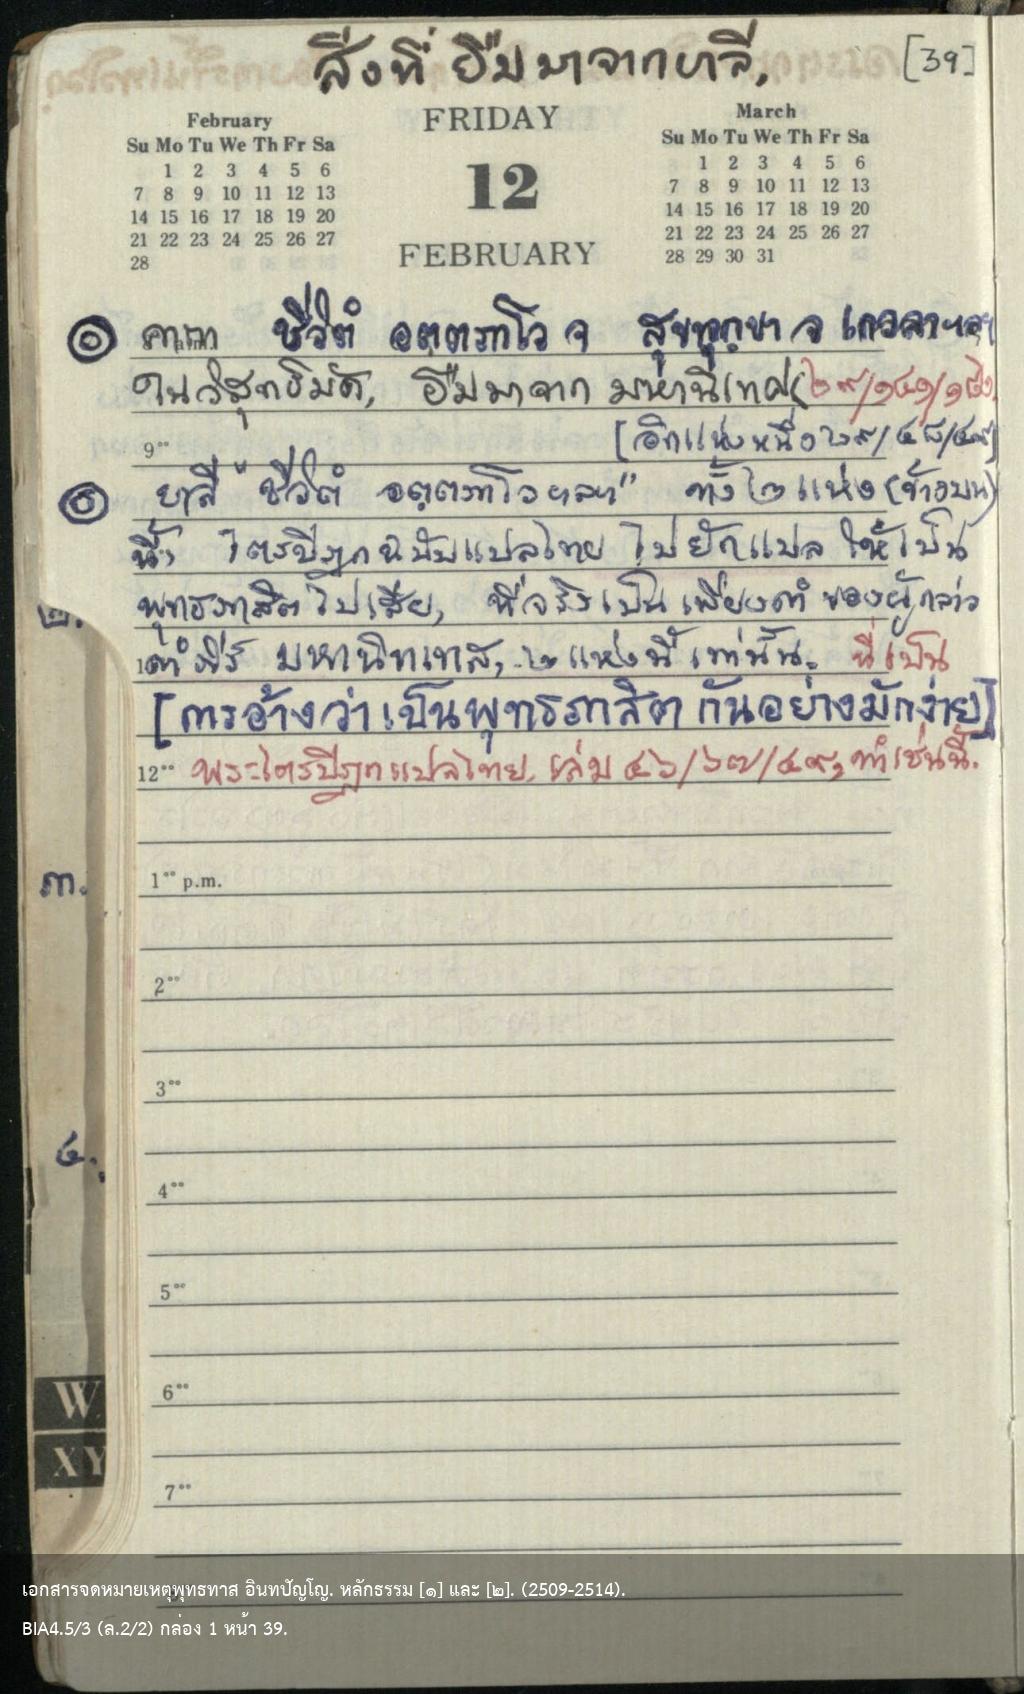 สิ่งที่ ยืมมาจากบาลี, [39]
February
Su Mo Tu We Th Fr Sa
1 2 3 4 5 6
7 8 9 10 11 12 13
14 15 16 17 18 19 20
21 22 23 24 25 26 27
28
FRIDAY
12
FEBRUARY
March
Su Mo Tu We Th Fr Sa
1 2 3 4 5 6
7 8 9 10 11 12 13
14 15 16 17 18 19 20
21 22 23 24 25 26 27
28 29 30 31
คาถา ชีวิตํ อตฺตภาโว จ สุขทุกฺขา จ เกวลา ฯลฯ
ในวิสุทธิมัค, ยืมมาจาก มหานิเทศ
9⁰⁰ [อีกแห่งหนึ่ง ๒๙/๔๘/๔๙]
บาลี "ชีวิตํ อตฺตภาโว ฯลฯ" ทั้ง ๒ แห่ง (ข้างบน)
นี้, ไตรปิฎกฉบับแปลไทย ไปยักแปล ให้เป็น
พุทธภาสิตไปเสีย, ที่จริงเป็นเพียงคำ ของผู้กล่าว
๒.
คำภีร์ มหานิทเทส, ๒ แห่งนี้ เท่านั้น. นี่เป็น
[การอ้างว่าเป็นพุทธภาสิต กันอย่างมักง่าย]
12⁰⁰ พระไตรปิฎกแปลไทย, เล่ม ๔๖/๖๗/๔๙, ทำเช่นนี้.
๓.
1⁰⁰ p.m.
2⁰⁰
3⁰⁰
๔.
4⁰⁰
5⁰⁰
6⁰⁰
W
XY
7⁰⁰
เอกสารจดหมายเหตุพุทธทาส อินทปัญโญ. หลักธรรม [๑] และ [๒]. (2509-2514).
BIA4.5/3 (ล.2/2) กล่อง 1 หน้า 39.